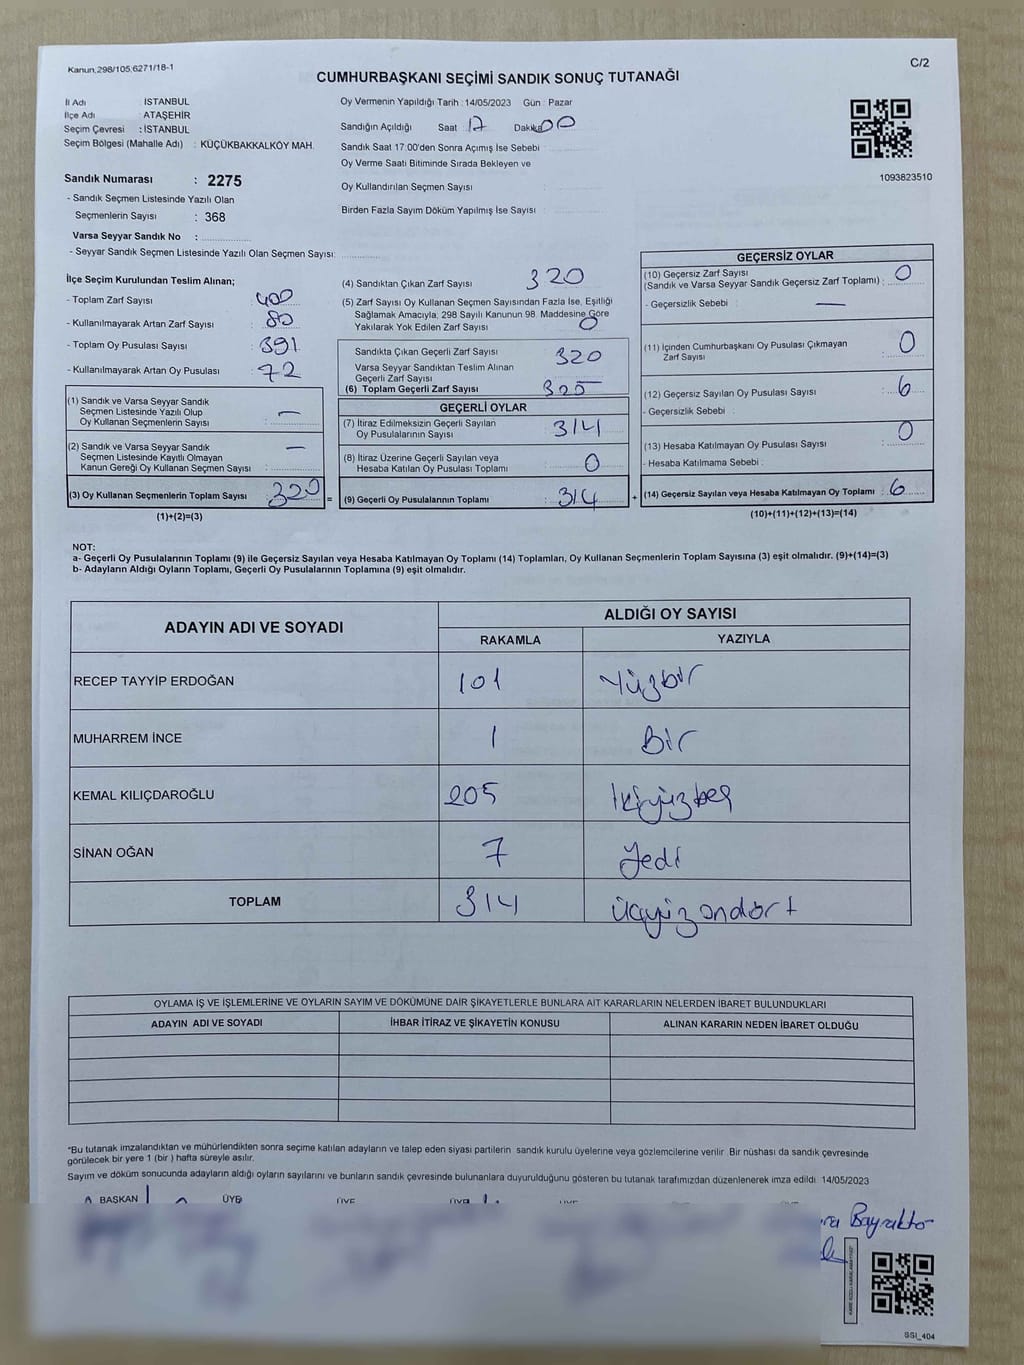 Kanun,298/105,6271/18-1
C/2
CUMHURBAŞKANI SEÇİMİ SANDIK SONUÇ TUTANAĞI
İl Adı : İSTANBUL
İlçe Adı : ATAŞEHİR
Seçim Çevresi : İSTANBUL
Seçim Bölgesi (Mahalle Adı) : KÜÇÜKBAKKALKÖY MAH.
Oy Vermenin Yapıldığı Tarih : 14/05/2023 Gün : Pazar
Sandığın Açıldığı Saat 17 Dakika 00
Sandık Saat 17:00'den Sonra Açımış İse Sebebi :
Oy Verme Saati Bitiminde Sırada Bekleyen ve
Oy Kullandırılan Seçmen Sayısı :
Birden Fazla Sayım Döküm Yapılmış İse Sayısı :
1093823510
Sandık Numarası : 2275
- Sandık Seçmen Listesinde Yazılı Olan
Seçmenlerin Sayısı : 368
Varsa Seyyar Sandık No :
- Seyyar Sandık Seçmen Listesinde Yazılı Olan Seçmen Sayısı:
İlçe Seçim Kurulundan Teslim Alınan;
- Toplam Zarf Sayısı : 400
- Kullanılmayarak Artan Zarf Sayısı : 80
- Toplam Oy Pusulası Sayısı : 391
- Kullanılmayarak Artan Oy Pusulası : 72
(1) Sandık ve Varsa Seyyar Sandık
Seçmen Listesinde Yazılı Olup
Oy Kullanan Seçmenlerin Sayısı : —
(2) Sandık ve Varsa Seyyar Sandık
Seçmen Listesinde Kayıtlı Olmayan
Kanun Gereği Oy Kullanan Seçmen Sayısı : —
(3) Oy Kullanan Seçmenlerin Toplam Sayısı : 320 =
(1)+(2)=(3)
(4) Sandıktan Çıkan Zarf Sayısı 320
(5) Zarf Sayısı Oy Kullanan Seçmen Sayısından Fazla İse, Eşitliği
Sağlamak Amacıyla; 298 Sayılı Kanunun 98. Maddesine Göre
Yakılarak Yok Edilen Zarf Sayısı : 0
Sandıkta Çıkan Geçerli Zarf Sayısı 320
Varsa Seyyar Sandıktan Teslim Alınan
Geçerli Zarf Sayısı
(6) Toplam Geçerli Zarf Sayısı 325
GEÇERLİ OYLAR
(7) İtiraz Edilmeksizin Geçerli Sayılan
Oy Pusulalarının Sayısı : 314
(8) İtiraz Üzerine Geçerli Sayılan veya
Hesaba Katılan Oy Pusulası Toplamı : 0
(9) Geçerli Oy Pusulalarının Toplamı : 314 +
GEÇERSİZ OYLAR
(10) Geçersiz Zarf Sayısı
(Sandık ve Varsa Seyyar Sandık Geçersiz Zarf Toplamı) : 0
- Geçersizlik Sebebi : —
(11) İçinden Cumhurbaşkanı Oy Pusulası Çıkmayan
Zarf Sayısı : 0
(12) Geçersiz Sayılan Oy Pusulası Sayısı : 6
- Geçersizlik Sebebi :
(13) Hesaba Katılmayan Oy Pusulası Sayısı : 0
- Hesaba Katılmama Sebebi :
(14) Geçersiz Sayılan veya Hesaba Katılmayan Oy Toplamı : 6
(10)+(11)+(12)+(13)=(14)
NOT:
a- Geçerli Oy Pusulalarının Toplamı (9) ile Geçersiz Sayılan veya Hesaba Katılmayan Oy Toplamı (14) Toplamları, Oy Kullanan Seçmenlerin Toplam Sayısına (3) eşit olmalıdır. (9)+(14)=(3)
b- Adayların Aldığı Oyların Toplamı, Geçerli Oy Pusulalarının Toplamına (9) eşit olmalıdır.
ADAYIN ADI VE SOYADI ALDIĞI OY SAYISI
RAKAMLA YAZIYLA
RECEP TAYYİP ERDOĞAN 101 Yüzbir
MUHARREM İNCE 1 Bir
KEMAL KILIÇDAROĞLU 205 İkiyüzbeş
SİNAN OĞAN 7 Yedi
TOPLAM 314 üçyüzondört
OYLAMA İŞ VE İŞLEMLERİNE VE OYLARIN SAYIM VE DÖKÜMÜNE DAİR ŞİKAYETLERLE BUNLARA AİT KARARLARIN NELERDEN İBARET BULUNDUKLARI
ADAYIN ADI VE SOYADI İHBAR İTİRAZ VE ŞİKAYETİN KONUSU ALINAN KARARIN NEDEN İBARET OLDUĞU
*Bu tutanak imzalandıktan ve mühürlendikten sonra seçime katılan adayların ve talep eden siyasi partilerin sandık kurulu üyelerine veya gözlemcilerine verilir. Bir nüshası da sandık çevresinde
görülecek bir yere 1 (bir ) hafta süreyle asılır.
Sayım ve döküm sonucunda adayların aldığı oyların sayılarını ve bunların sandık çevresinde bulunanlara duyurulduğunu gösteren bu tutanak tarafımızdan düzenlenerek imza edildi. 14/05/2023
BAŞKAN ÜYE ÜYE ÜYE
Bayraktar
SSI_404